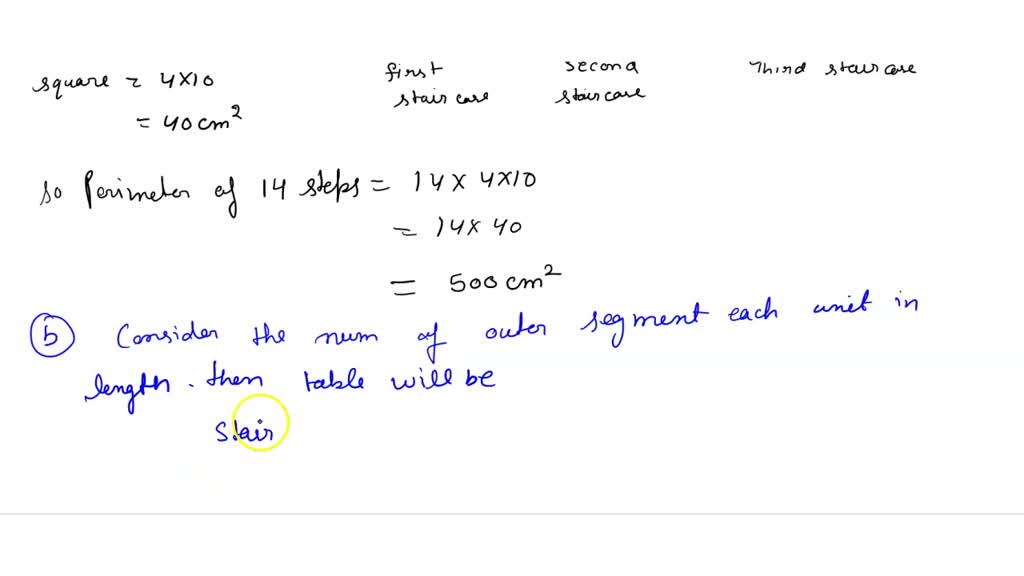 square = 4X10
= 40 cm²
first staircase
second staircase
Third staircase
so Perimeter of 14 steps = 14 x 4x10
= 14x 40
= 500 cm²
(b) Consider the num of outer segment each unit in
length. then table will be
Stair